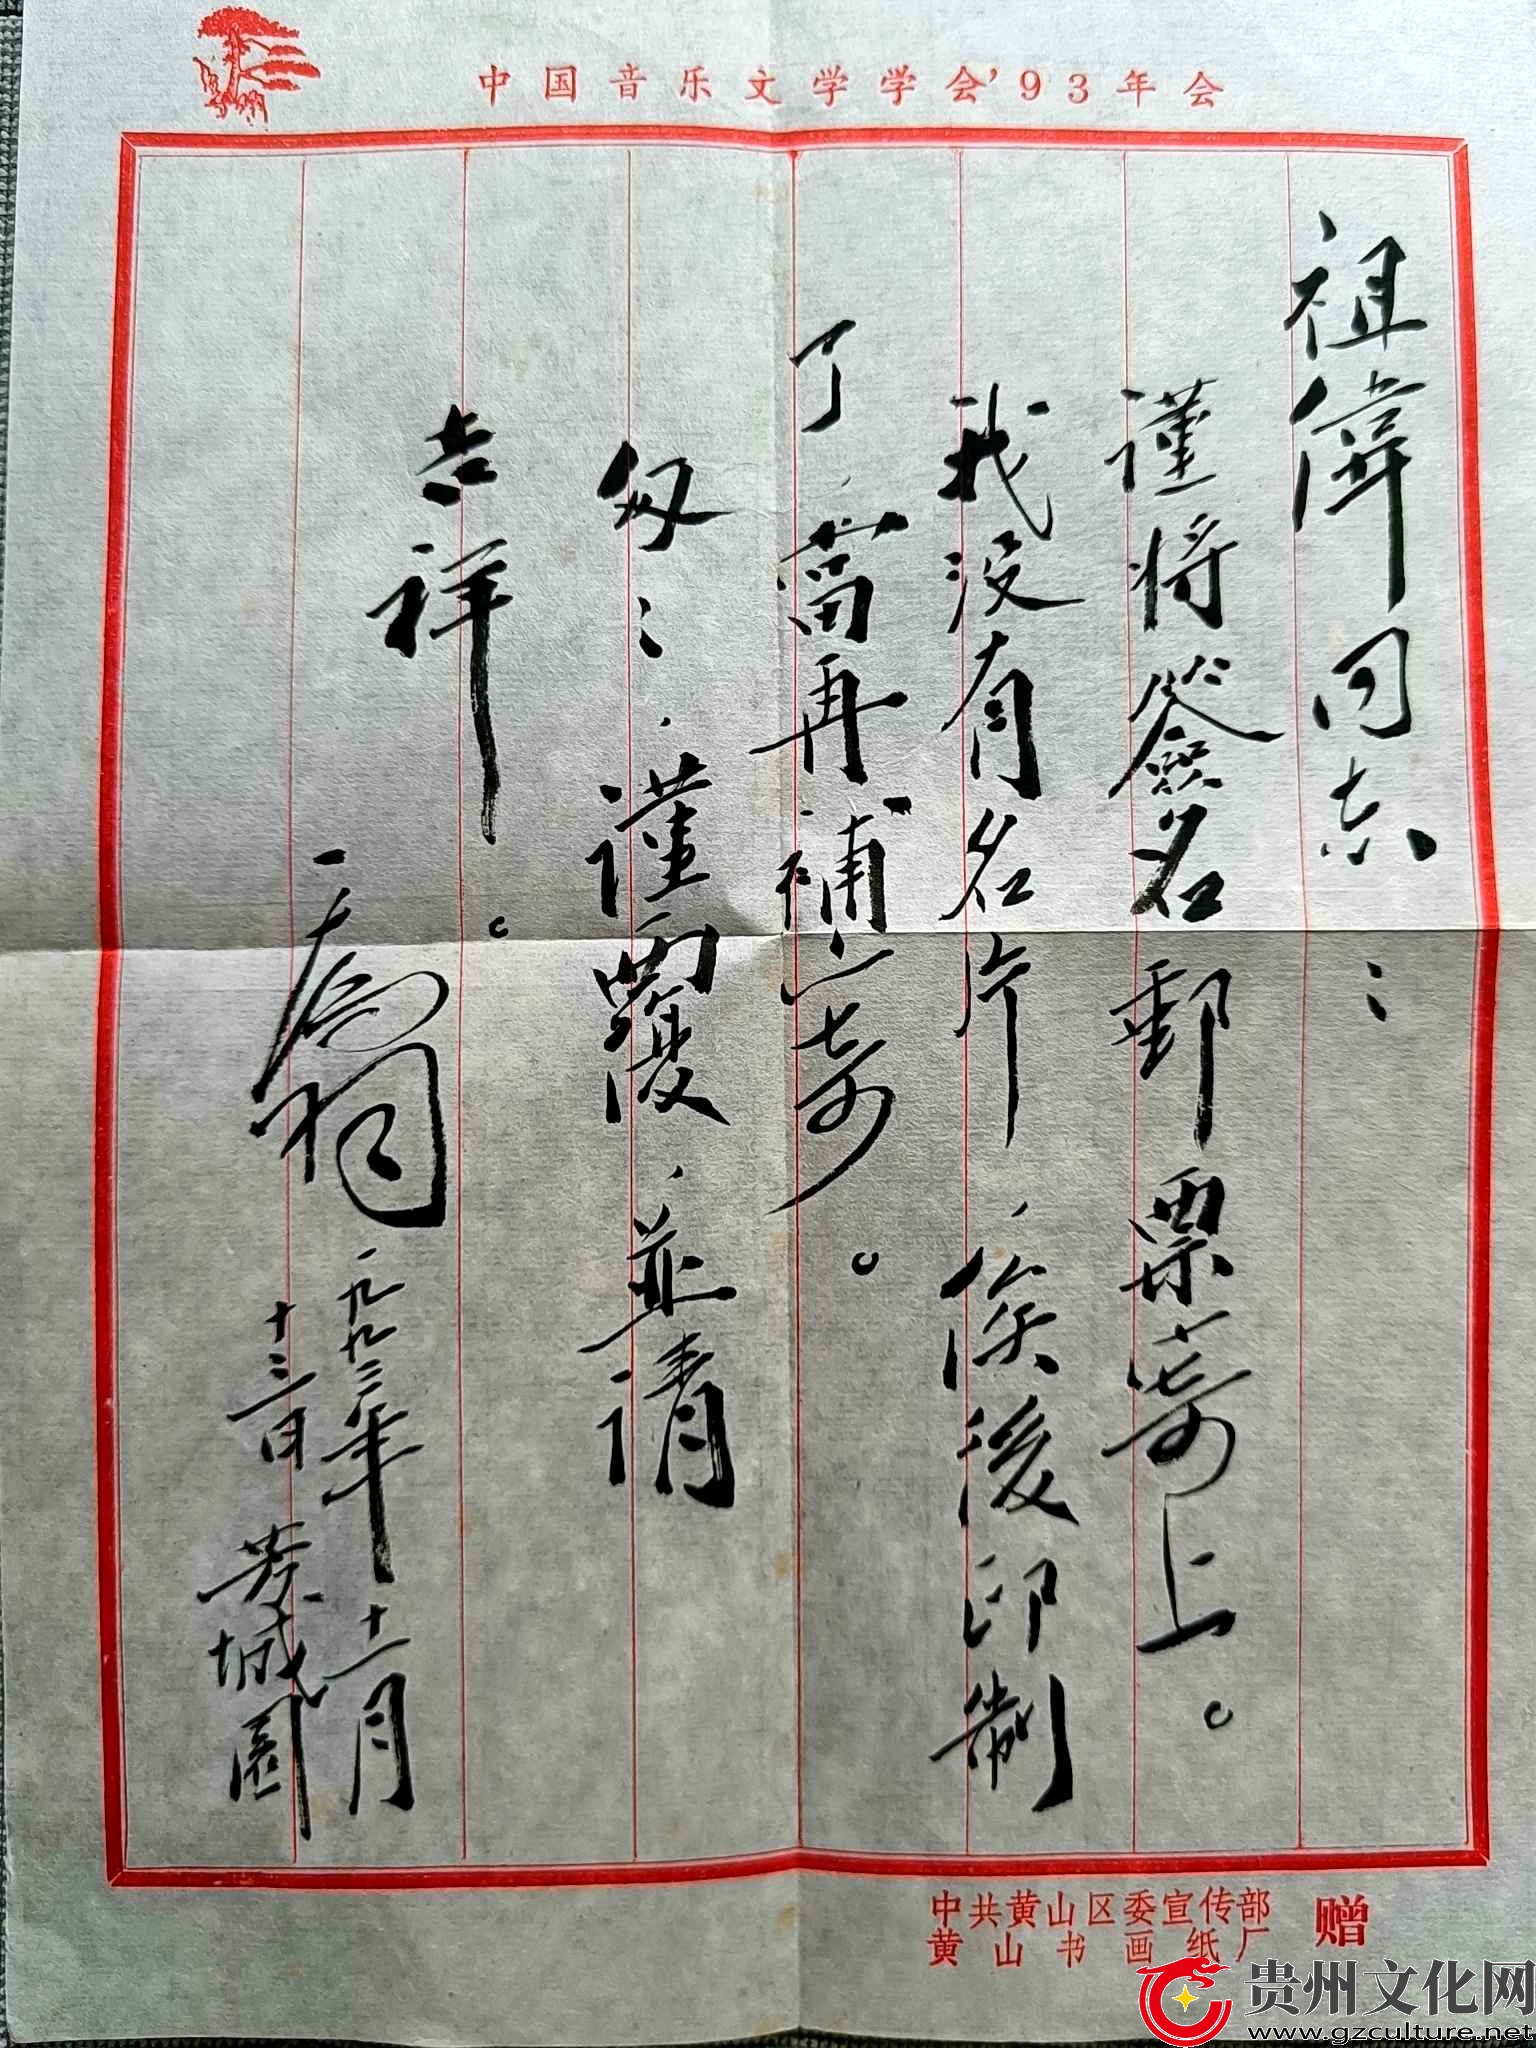 中国音乐文学学会'93年会
祖偉同志：
謹將簽名郵票寄上。
我没有名片，俟後印制
了，當再補寄。
匆匆，謹覆，並請
吉祥。
一九九三年十一月
十三日
中共黄山区委宣传部
黄山书画纸厂
赠
贵州文化网
www.gzculture.net